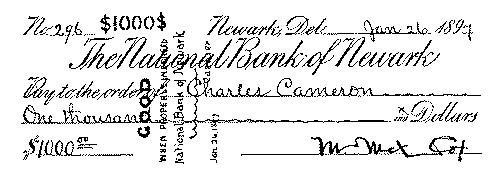 No. 296 $1000$ Newark, Del. Jan 26 1897
The National Bank of Newark
Pay to the order of Charles Cameron
One thousand xx/100 Dollars
$1000 00/100 M. Mex Cox
GOOD
WHEN PROPERLY INDORSED
National Bank of Newark
Jan. 26, 1897